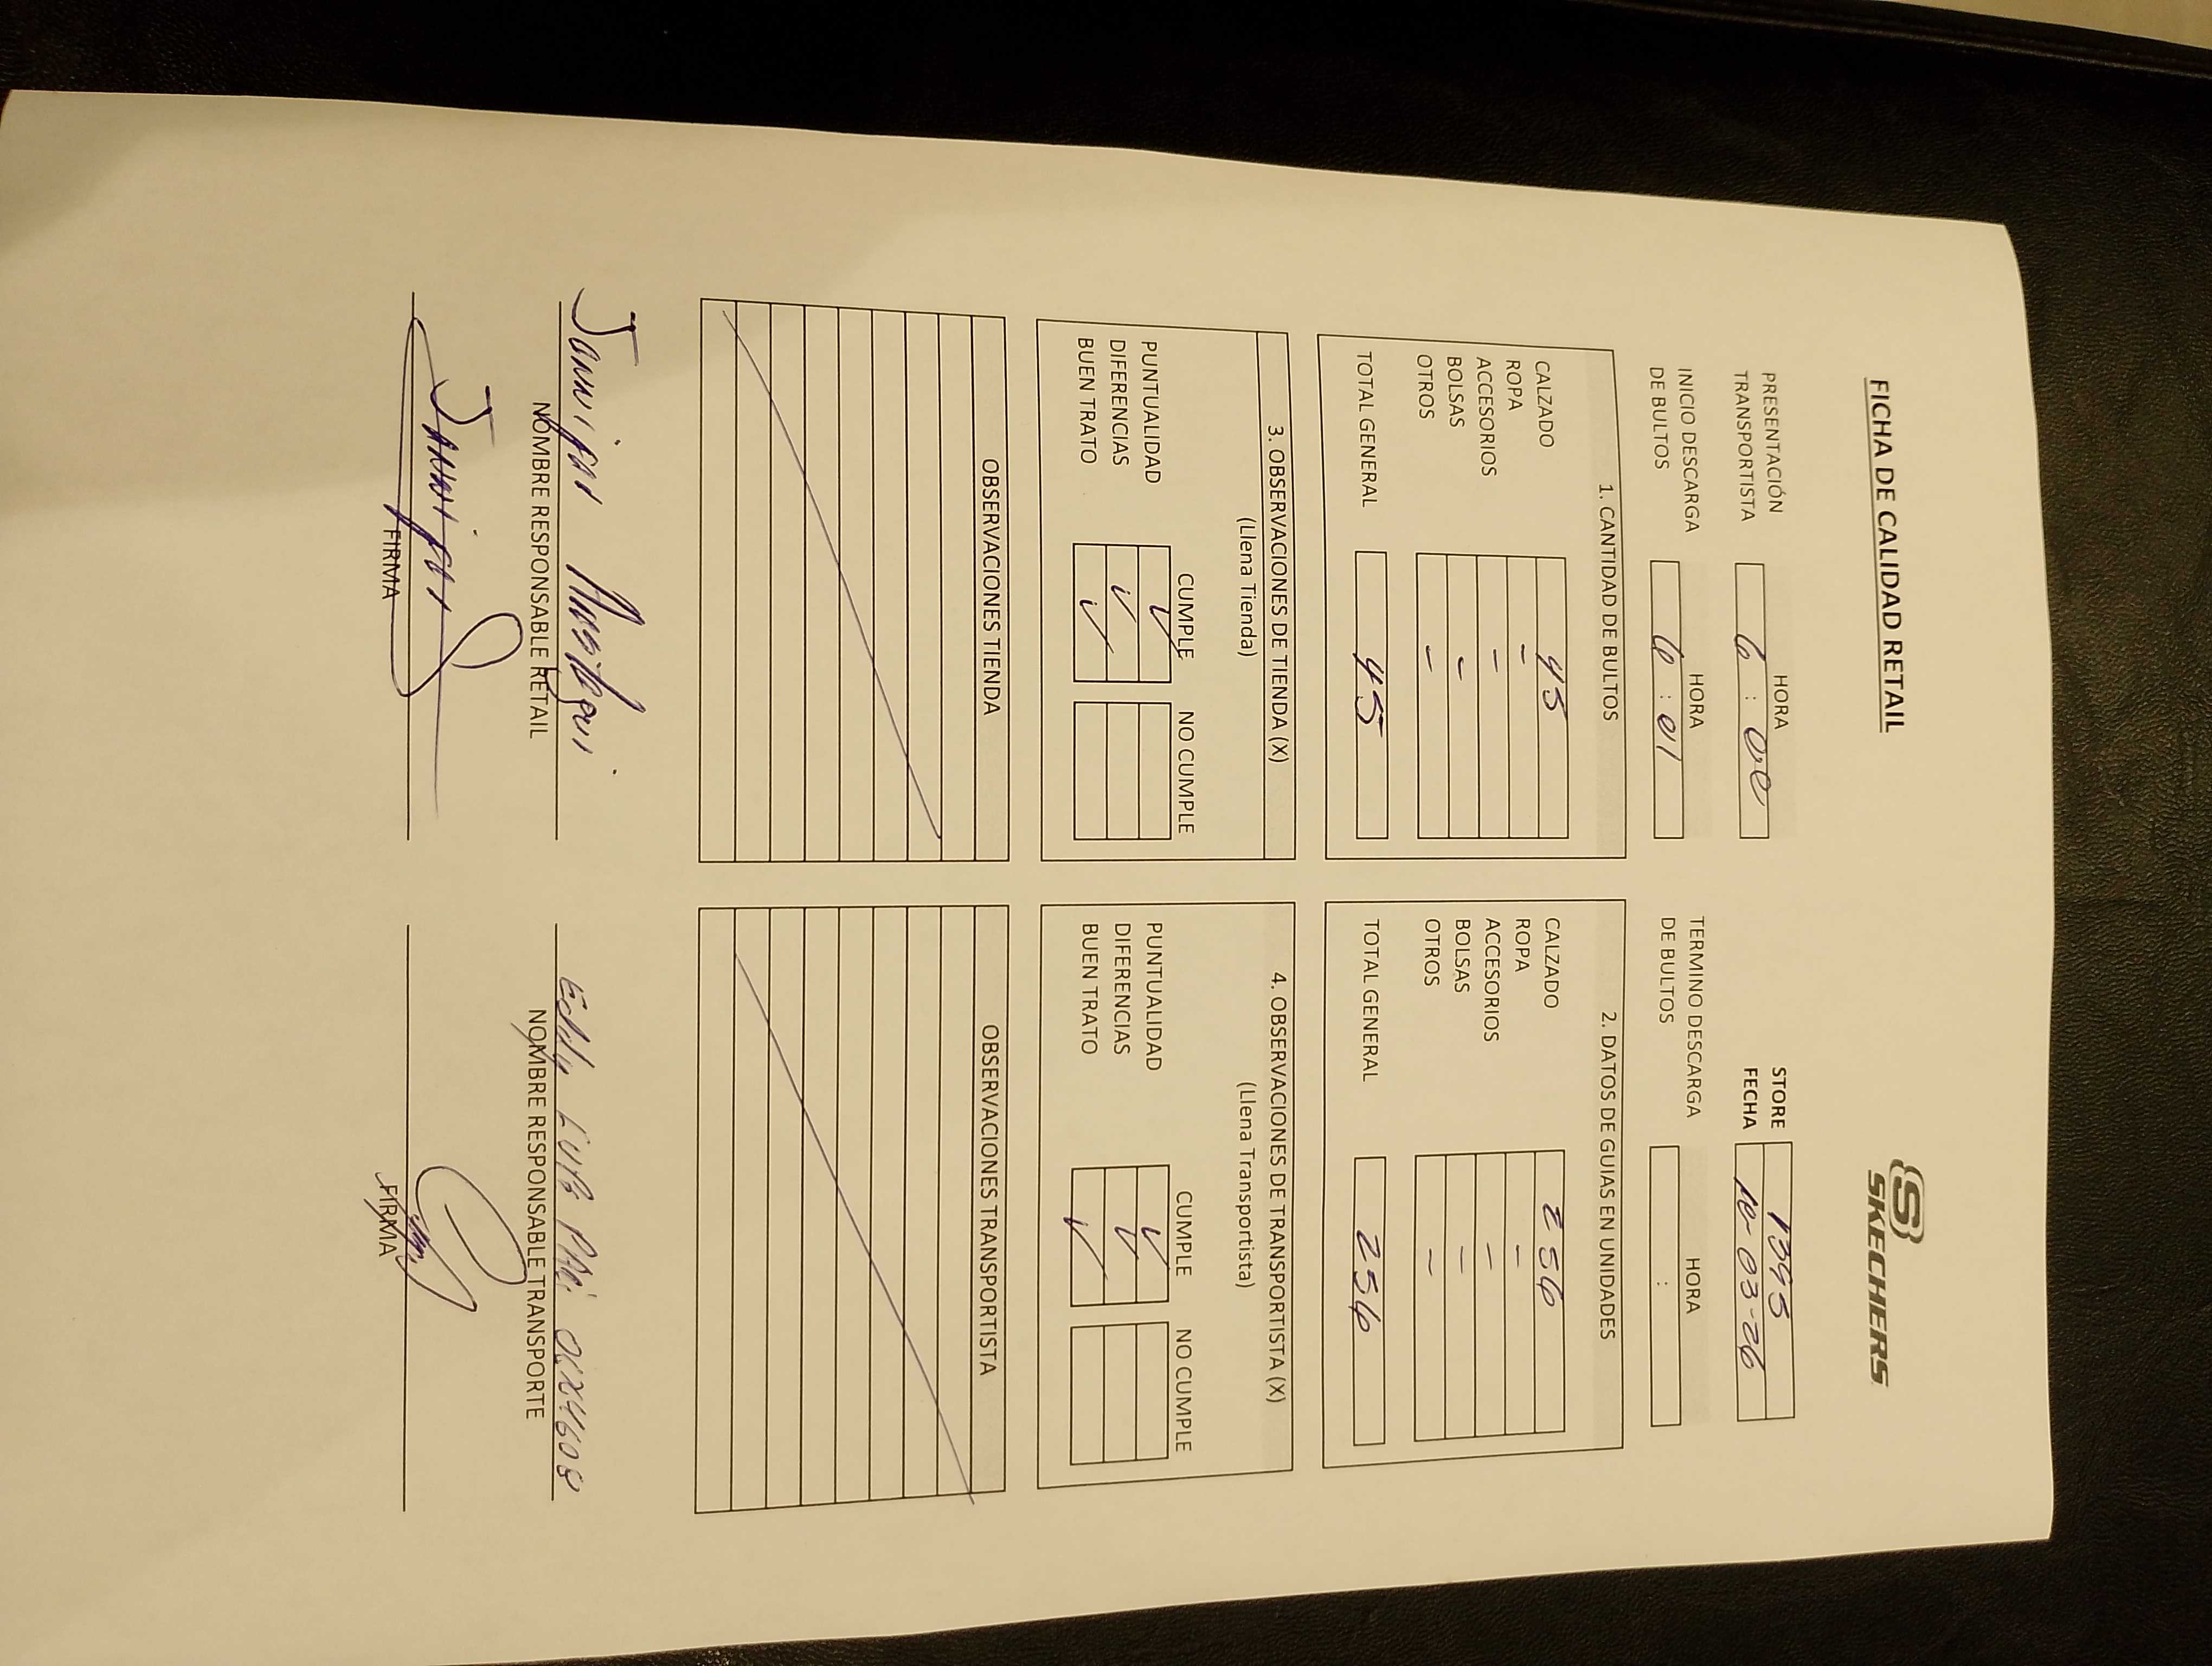 FICHA DE CALIDAD RETAIL
SKECHERS
STORE 1395
FECHA 10-03-26
HORA
PRESENTACIÓN TRANSPORTISTA 6 : 00
HORA HORA
INICIO DESCARGA DE BULTOS 6 : 01
TERMINO DESCARGA DE BULTOS :
1. CANTIDAD DE BULTOS
CALZADO 45
ROPA -
ACCESORIOS -
BOLSAS -
OTROS -
TOTAL GENERAL 45
2. DATOS DE GUIAS EN UNIDADES
CALZADO 256
ROPA -
ACCESORIOS -
BOLSAS -
OTROS -
TOTAL GENERAL 256
3. OBSERVACIONES DE TIENDA (X)
(Llena Tienda)
CUMPLE NO CUMPLE
PUNTUALIDAD ✓
DIFERENCIAS ✓
BUEN TRATO ✓
4. OBSERVACIONES DE TRANSPORTISTA (X)
(Llena Transportista)
CUMPLE NO CUMPLE
PUNTUALIDAD ✓
DIFERENCIAS ✓
BUEN TRATO ✓
OBSERVACIONES TIENDA
OBSERVACIONES TRANSPORTISTA
NOMBRE RESPONSABLE RETAIL
Eddy
NOMBRE RESPONSABLE TRANSPORTE
FIRMA
FIRMA